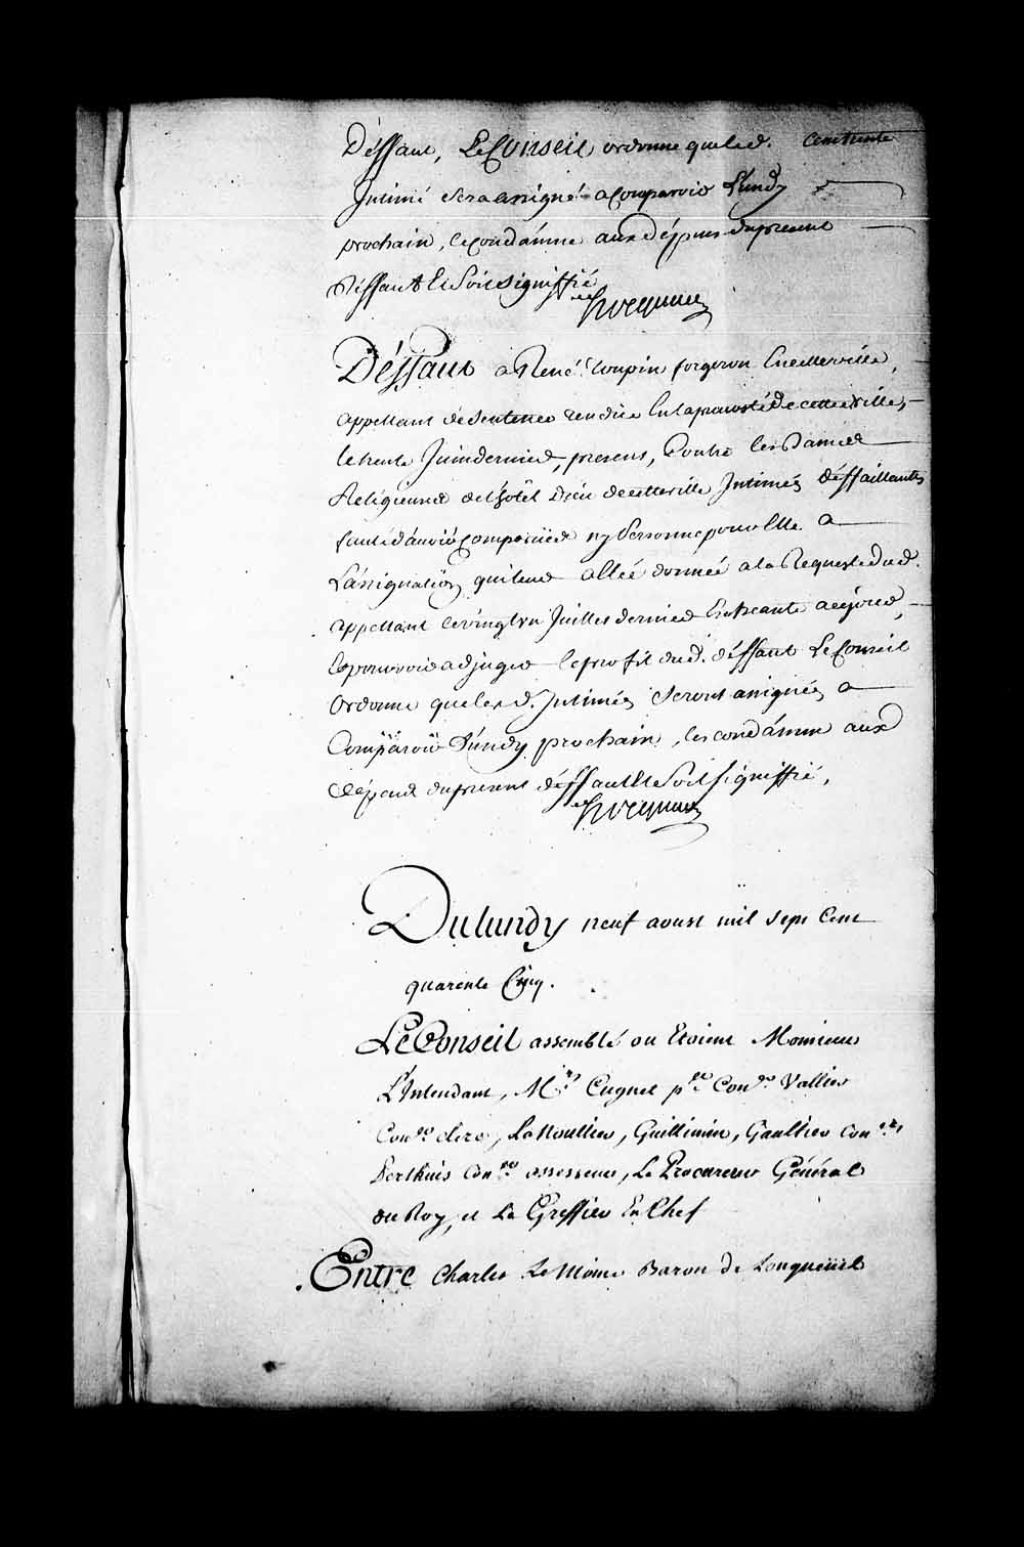 Déffaut, Le Conseil ordonne que led. cent trente
Intimé sera assigné a Comparoir Lundy
prochain, le condamne aux dépens du present
déffaut Et Soit signiffié
hocquart
Déffaut a René Toupin forgeron En cette ville,
appellant de Sentence rendue En la prevosté de cette ville,
le trente Juin dernier, present, Contre les Dames
Religieuses de l'hôtel Dieu de cette ville Intimés déffaillantes
faute d'avoir Comparües ny Personne pour Elle a
L'assignation qui leur a Eté donnée a la Requeste dud.
appellant le vingt un Juillet dernier Echeante a ce jour,
Et pour voir adjuger le profit dud. déffaut Le Conseil
Ordonne que lesd. Intimés seront assignés a
Comparoir Lundy prochain, les condamne aux
Dépens du present déffaut Et Soit signiffié,
hocquart
Du lundy neuf aoust mil sept Cent
quarente Cinq.
Le Conseil assemblé ou Etoient Monsieur
L'Intendant, Mrs. Cugnet per. Coner. Vallier
Coner. clerc, LaNoullier, Guillimin, Gaultier Coners.
Perthuis Coner. assesseur, Le Procureur Général
du Roy, et Le Greffier En Chef
Entre Charles Le Moine Baron de Longueüil